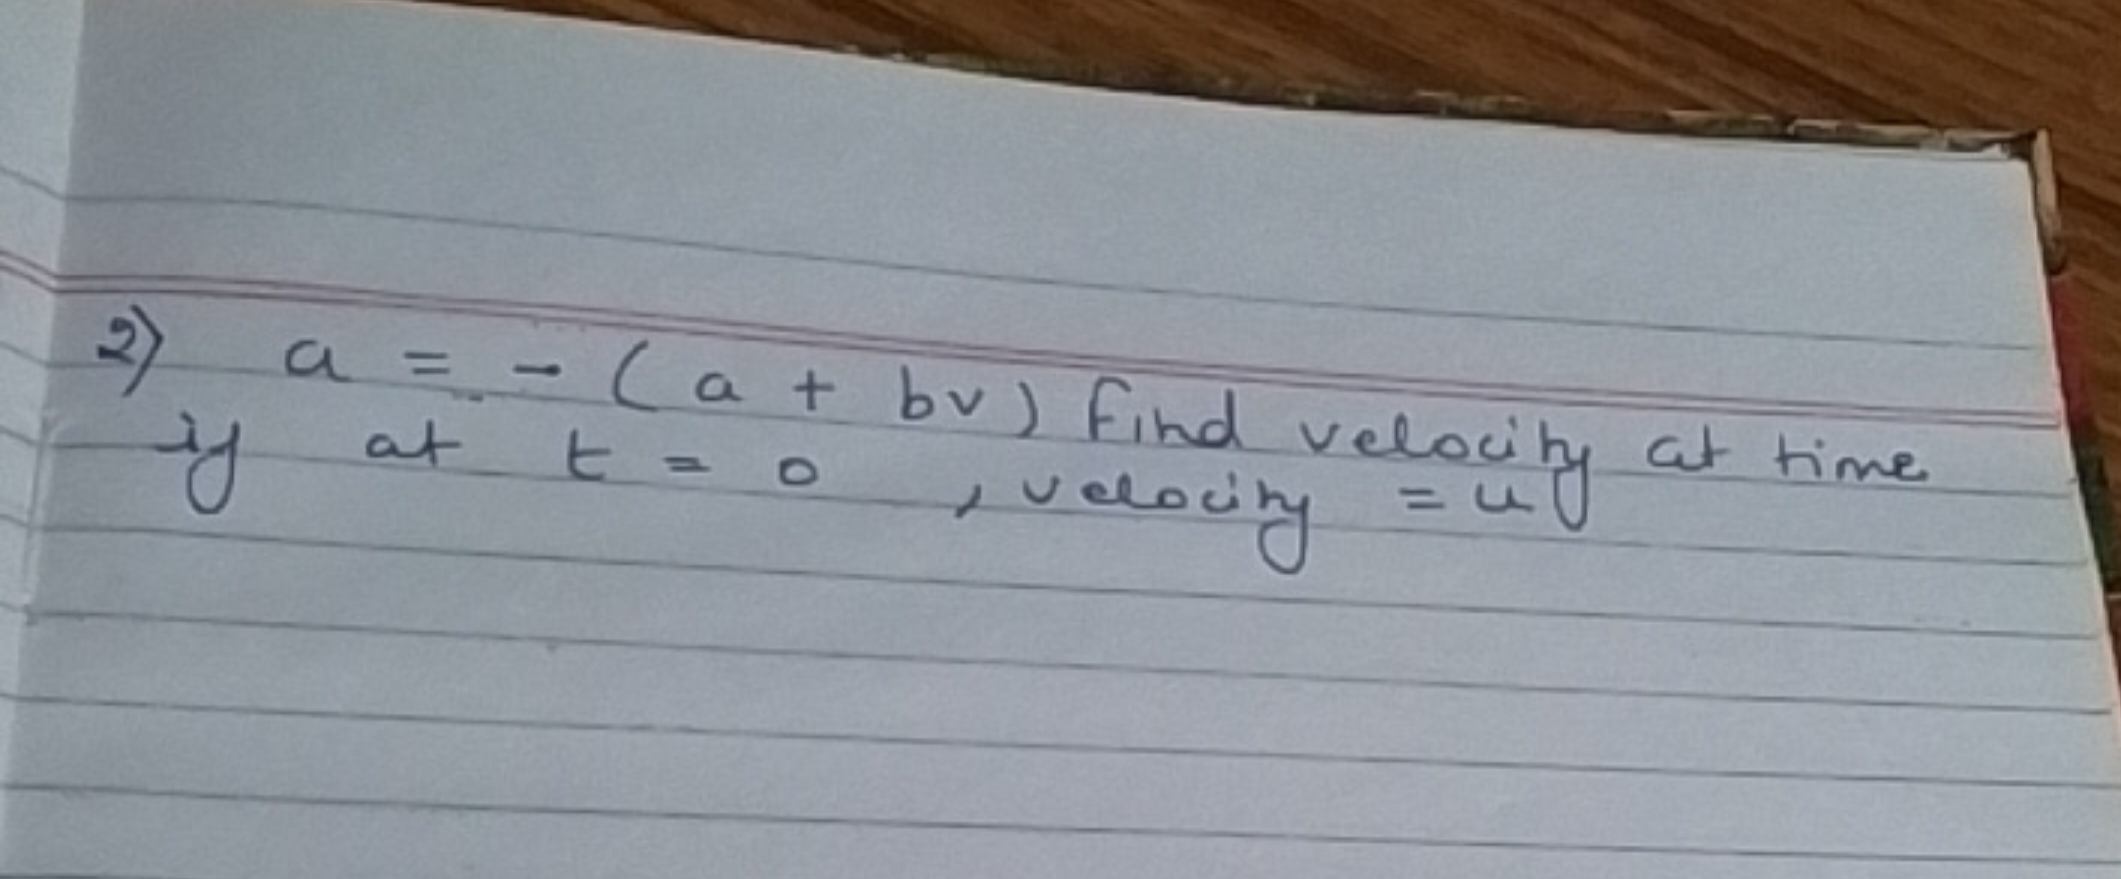 2) a = - ( a + bv ) Find velocity at time
if at t = 0 , velocity = u